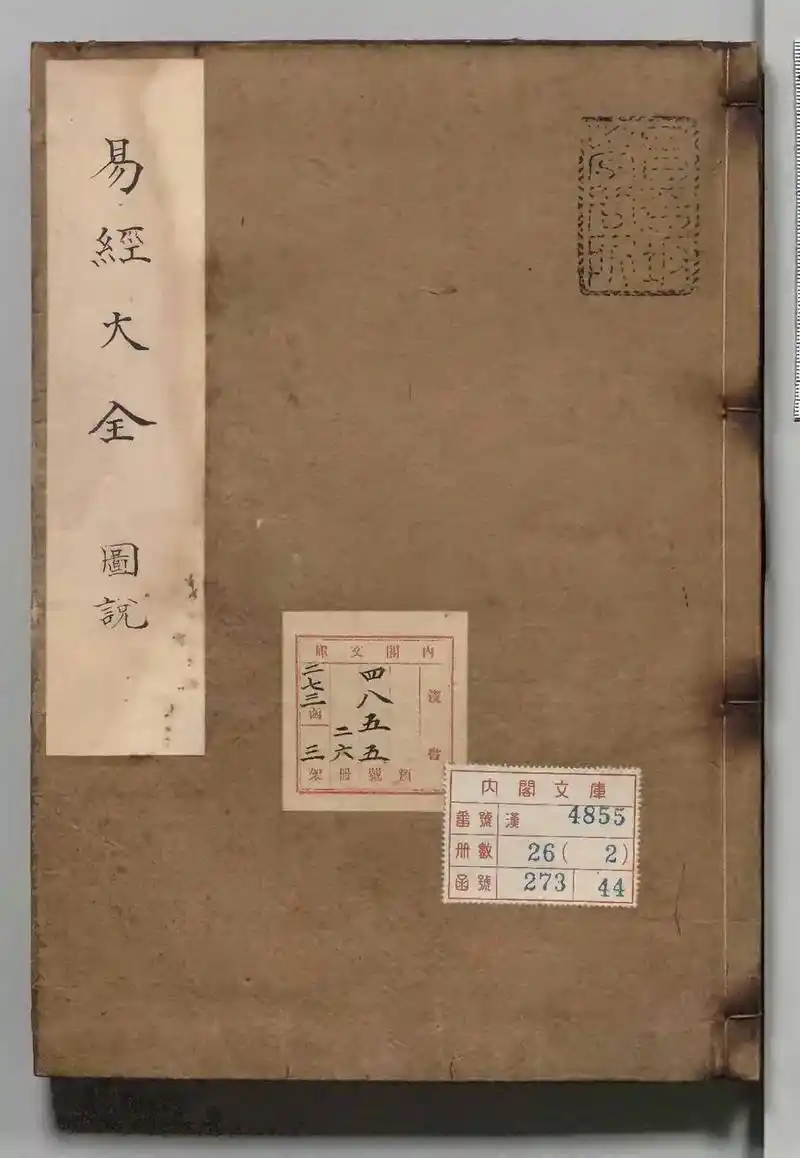 易經大全 圖說
內閣文庫
漢書
四八五五
號
二六
冊
二七三
函
三
架
內閣文庫
番號 漢 4855
冊數 26( 2)
函號 273 44